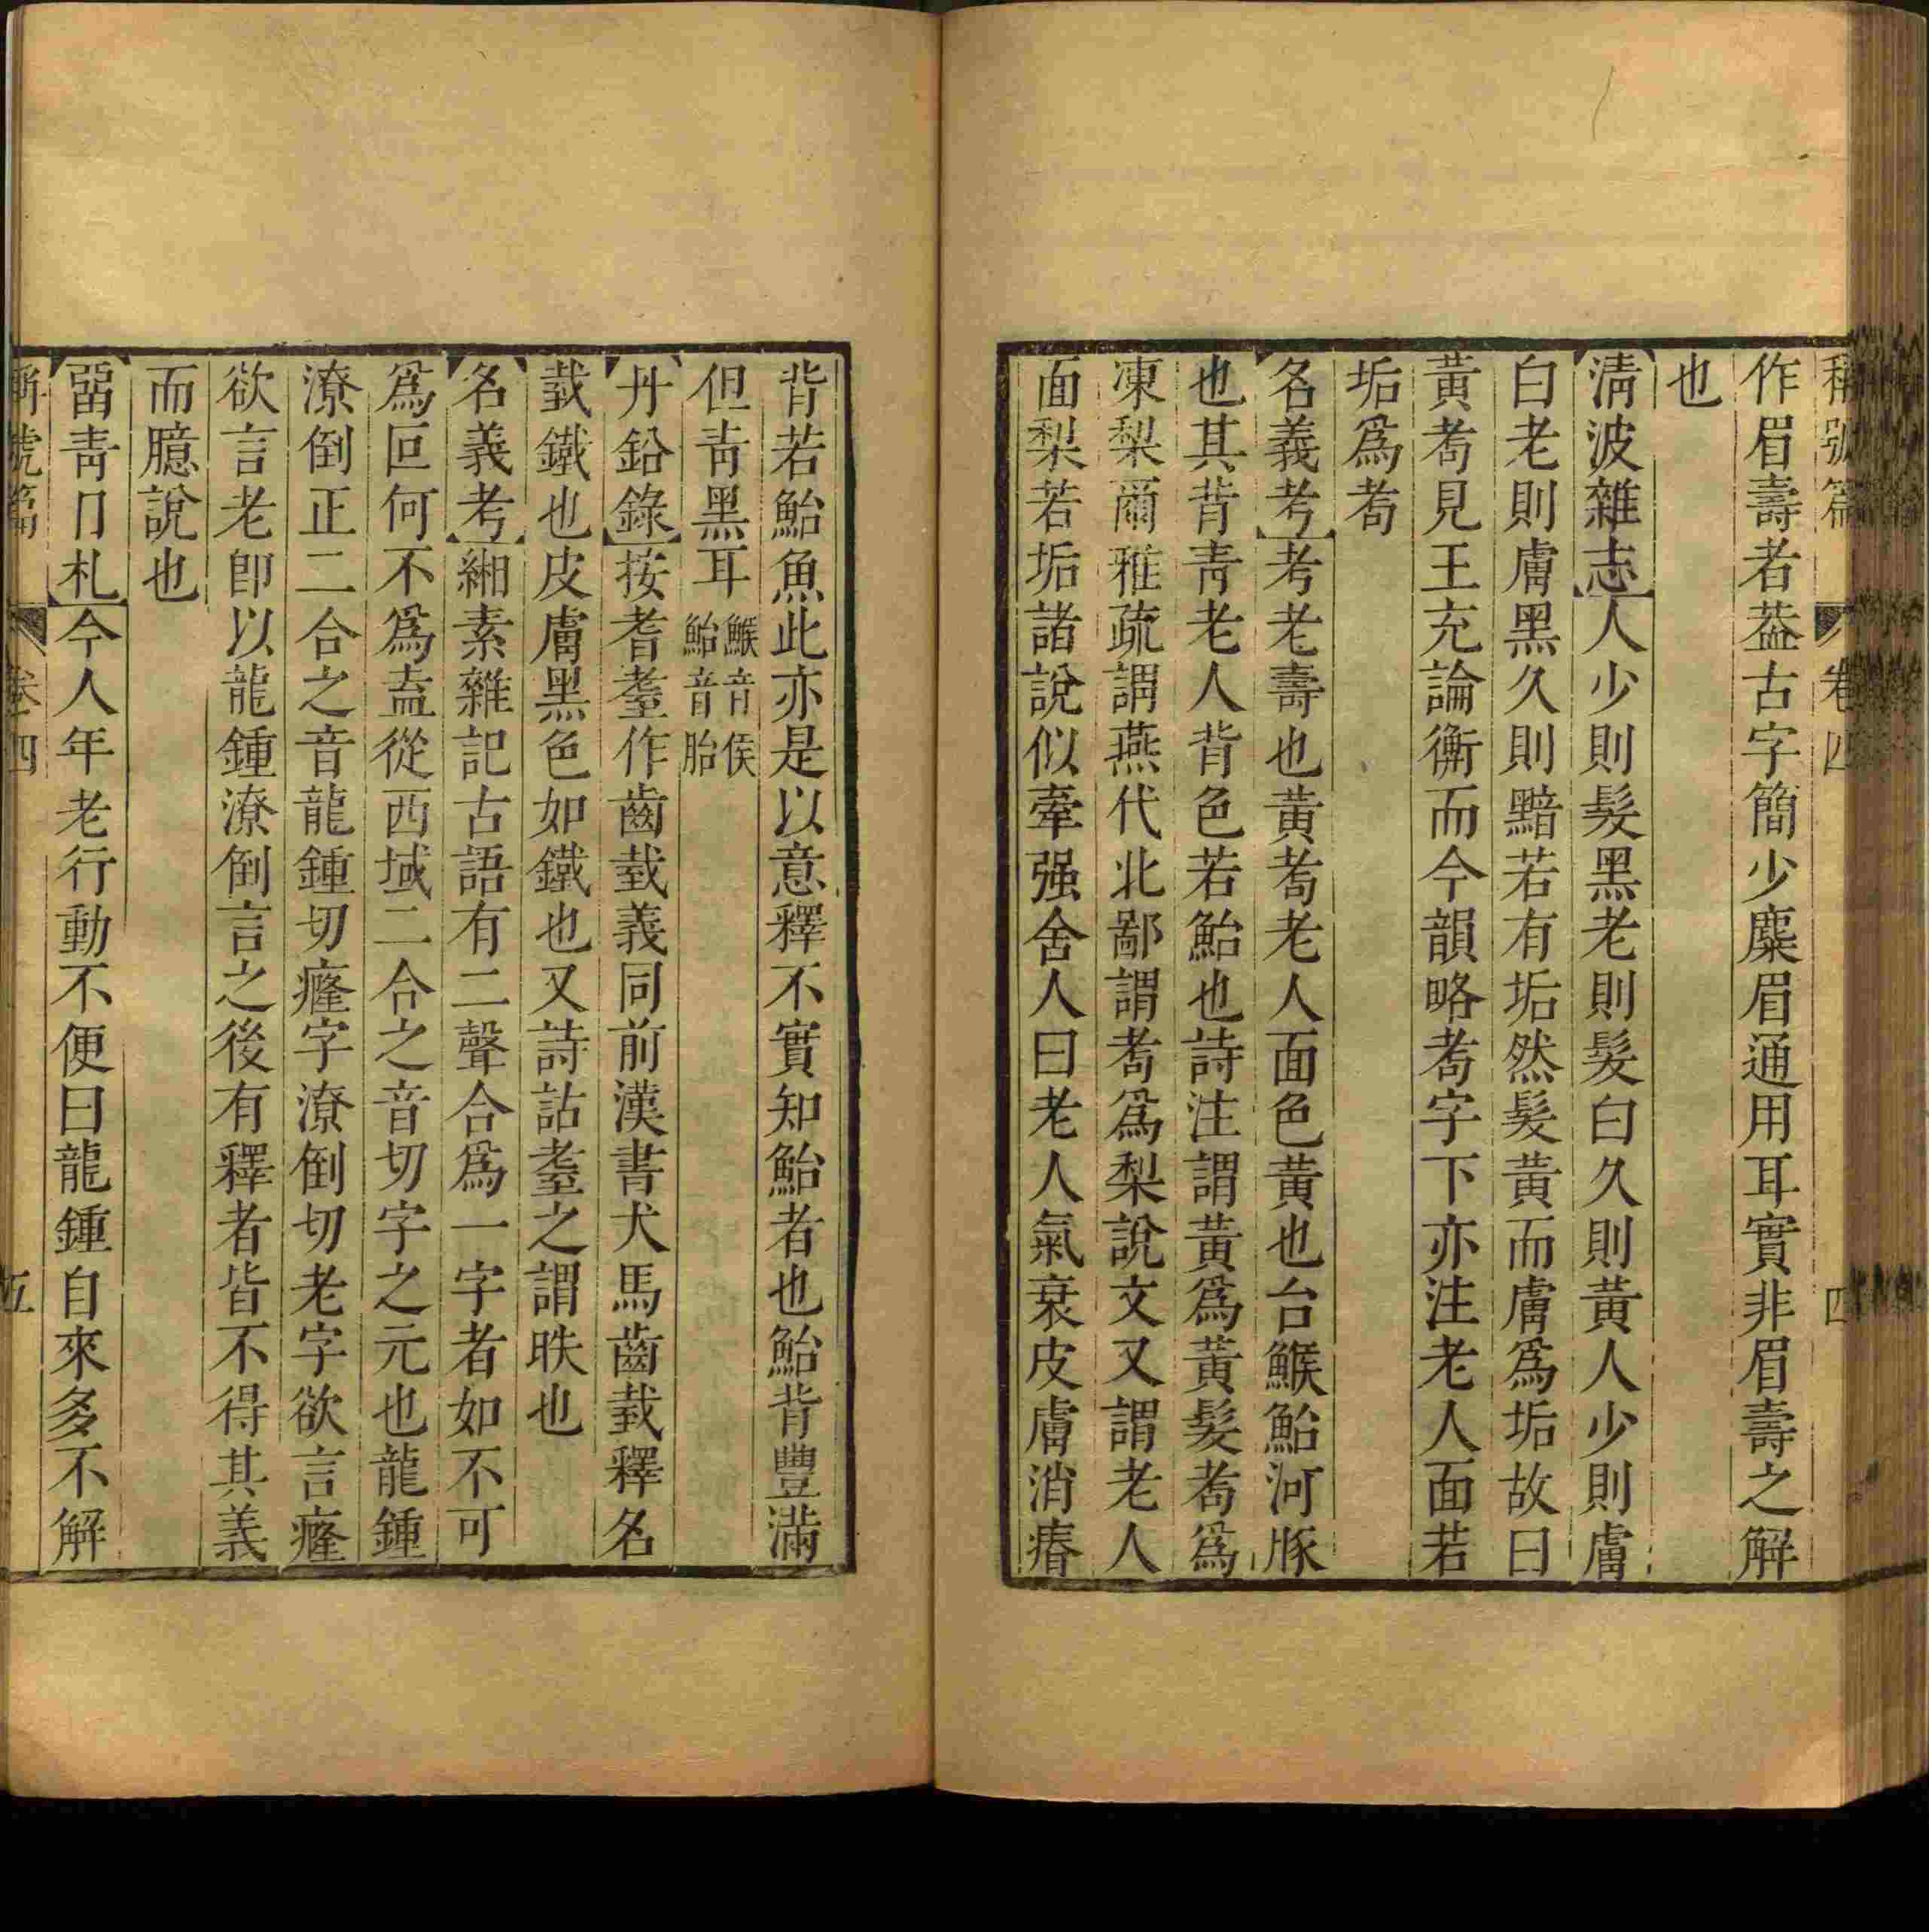 稱號篇 卷四 四
作眉壽者葢古字簡少麋眉通用耳實非眉壽之解
也
淸波雜志人少則髮黑老則髮白久則黃人少則膚
白老則膚黑久則黯若有垢然髮黃而膚爲垢故曰
黃耇見王充論衡而今韻略耇字下亦注老人面若
垢爲耇
名義考考老壽也黃耇老人面色黃也台鯸鮐河豚
也其背靑老人背色若鮐也詩注謂黃爲黃髮耇爲
凍梨爾雅疏謂燕代北鄙謂耇爲梨說文又謂老人
面梨若垢諸說似牽强舍人曰老人氣衰皮膚消瘠
背若鮐魚此亦是以意釋不實知鮐者也鮐背豐滿
但靑黑耳鯸音侯鮐音胎
丹鉛錄按耆耋作齒㦶義同前漢書犬馬齒㦶釋名
㦶鐵也皮膚黑色如鐵也又詩詁耋之謂昳也
名義考緗素雜記古語有二聲合爲一字者如不可
爲叵何不爲盍從西域二合之音切字之元也龍鍾
潦倒正二合之音龍鍾切癃字潦倒切老字欲言癃
欲言老卽以龍鍾潦倒言之後有釋者皆不得其義
而臆說也
畱靑日札今人年老行動不便曰龍鍾自來多不解
稱號篇 卷四 五